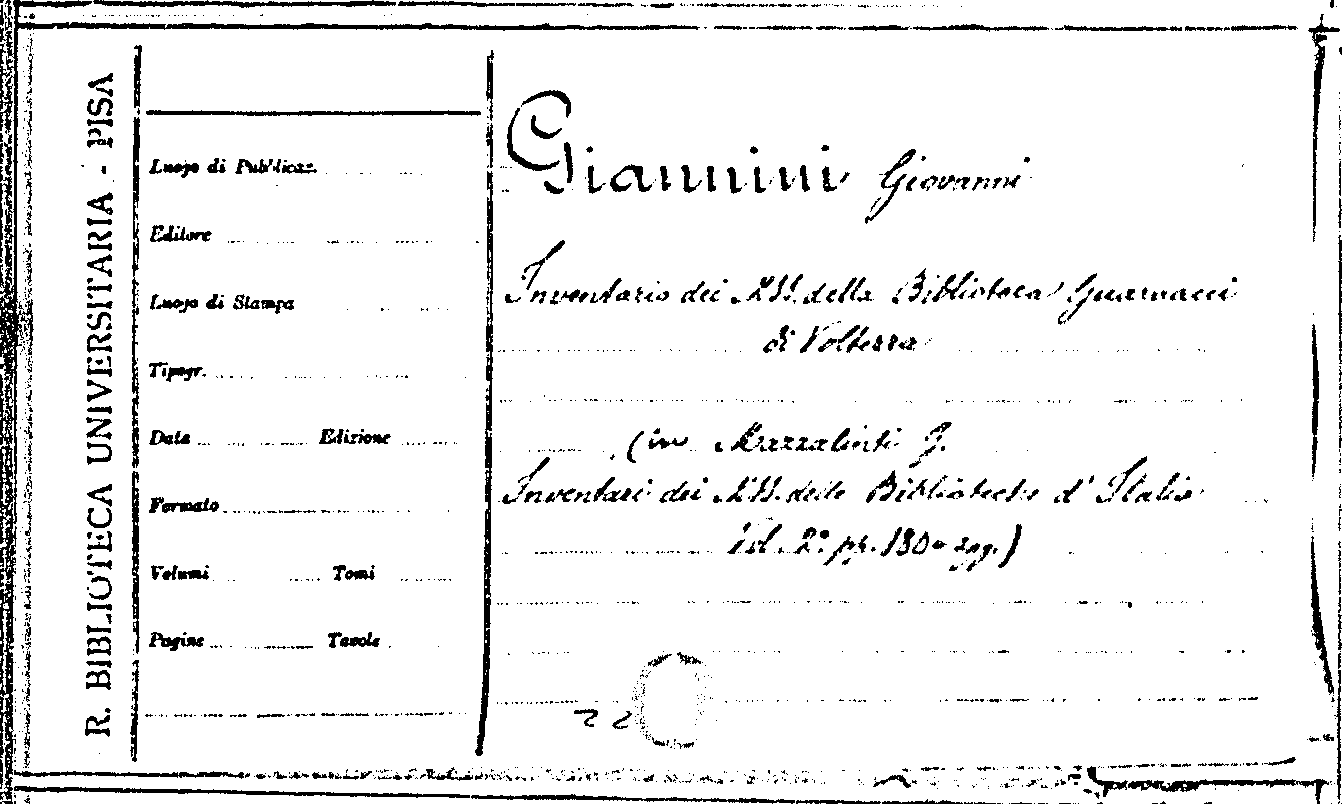 R. BIBLIOTECA UNIVERSITARIA - PISA
Luogo di Pubblicaz.
Editore
Luogo di Stampa
Tipogr.
Data Edizione
Formato
Volumi Tomi
Pagine Tavole
Giannini Giovanni
Inventario dei MSS. della Biblioteca Guarnacci
di Volterra
(in Mazzatinti G.
Inventari dei MSS. delle Biblioteche d' Italia
Vol. 2° pp. 180 e sgg.)